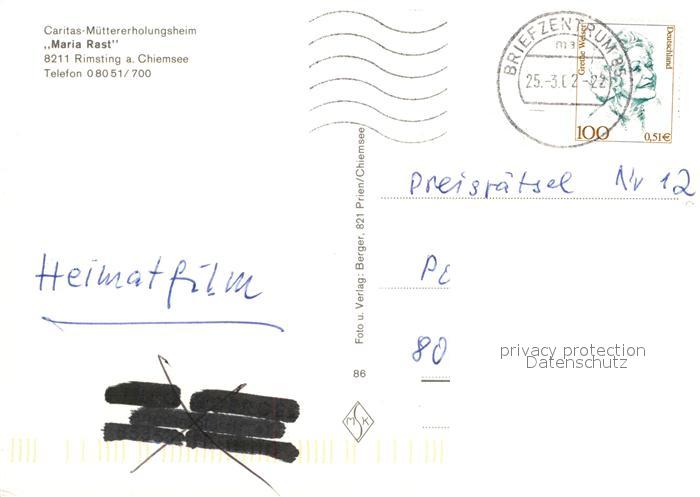 Caritas-Müttererholungsheim
„Maria Rast"
8211 Rimsting a. Chiemsee
Telefon 08051/700
BRIEFZENTRUM 85
ma
25.-3.02-22
Grethe Weiser
Deutschland
100
0,51€
Foto u. Verlag: Berger, 821 Prien/Chiemsee
Preisrätsel Nr 12
Heimatfilm
80
86
MSK
privacy protection
Datenschutz